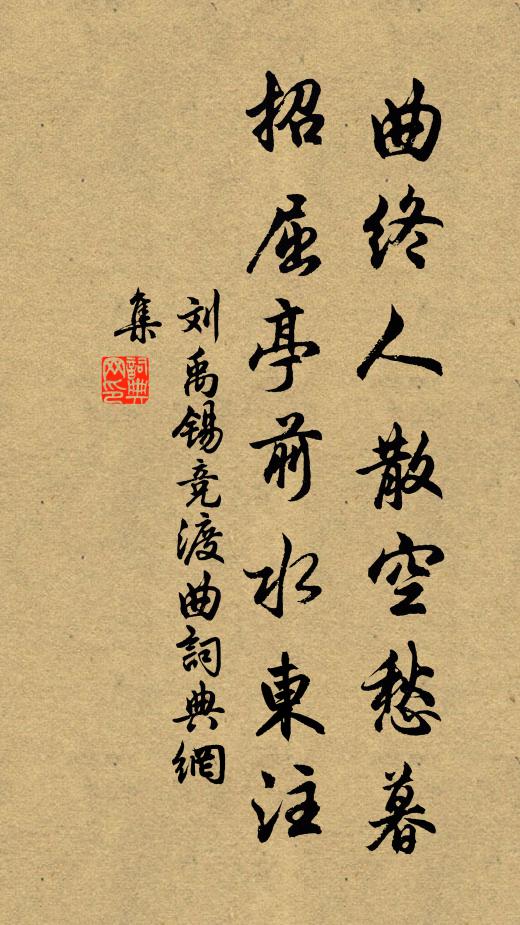 曲终人散空愁暮
招屈亭前水東注
刘禹锡竞渡曲詞典網
集
詞典
网印